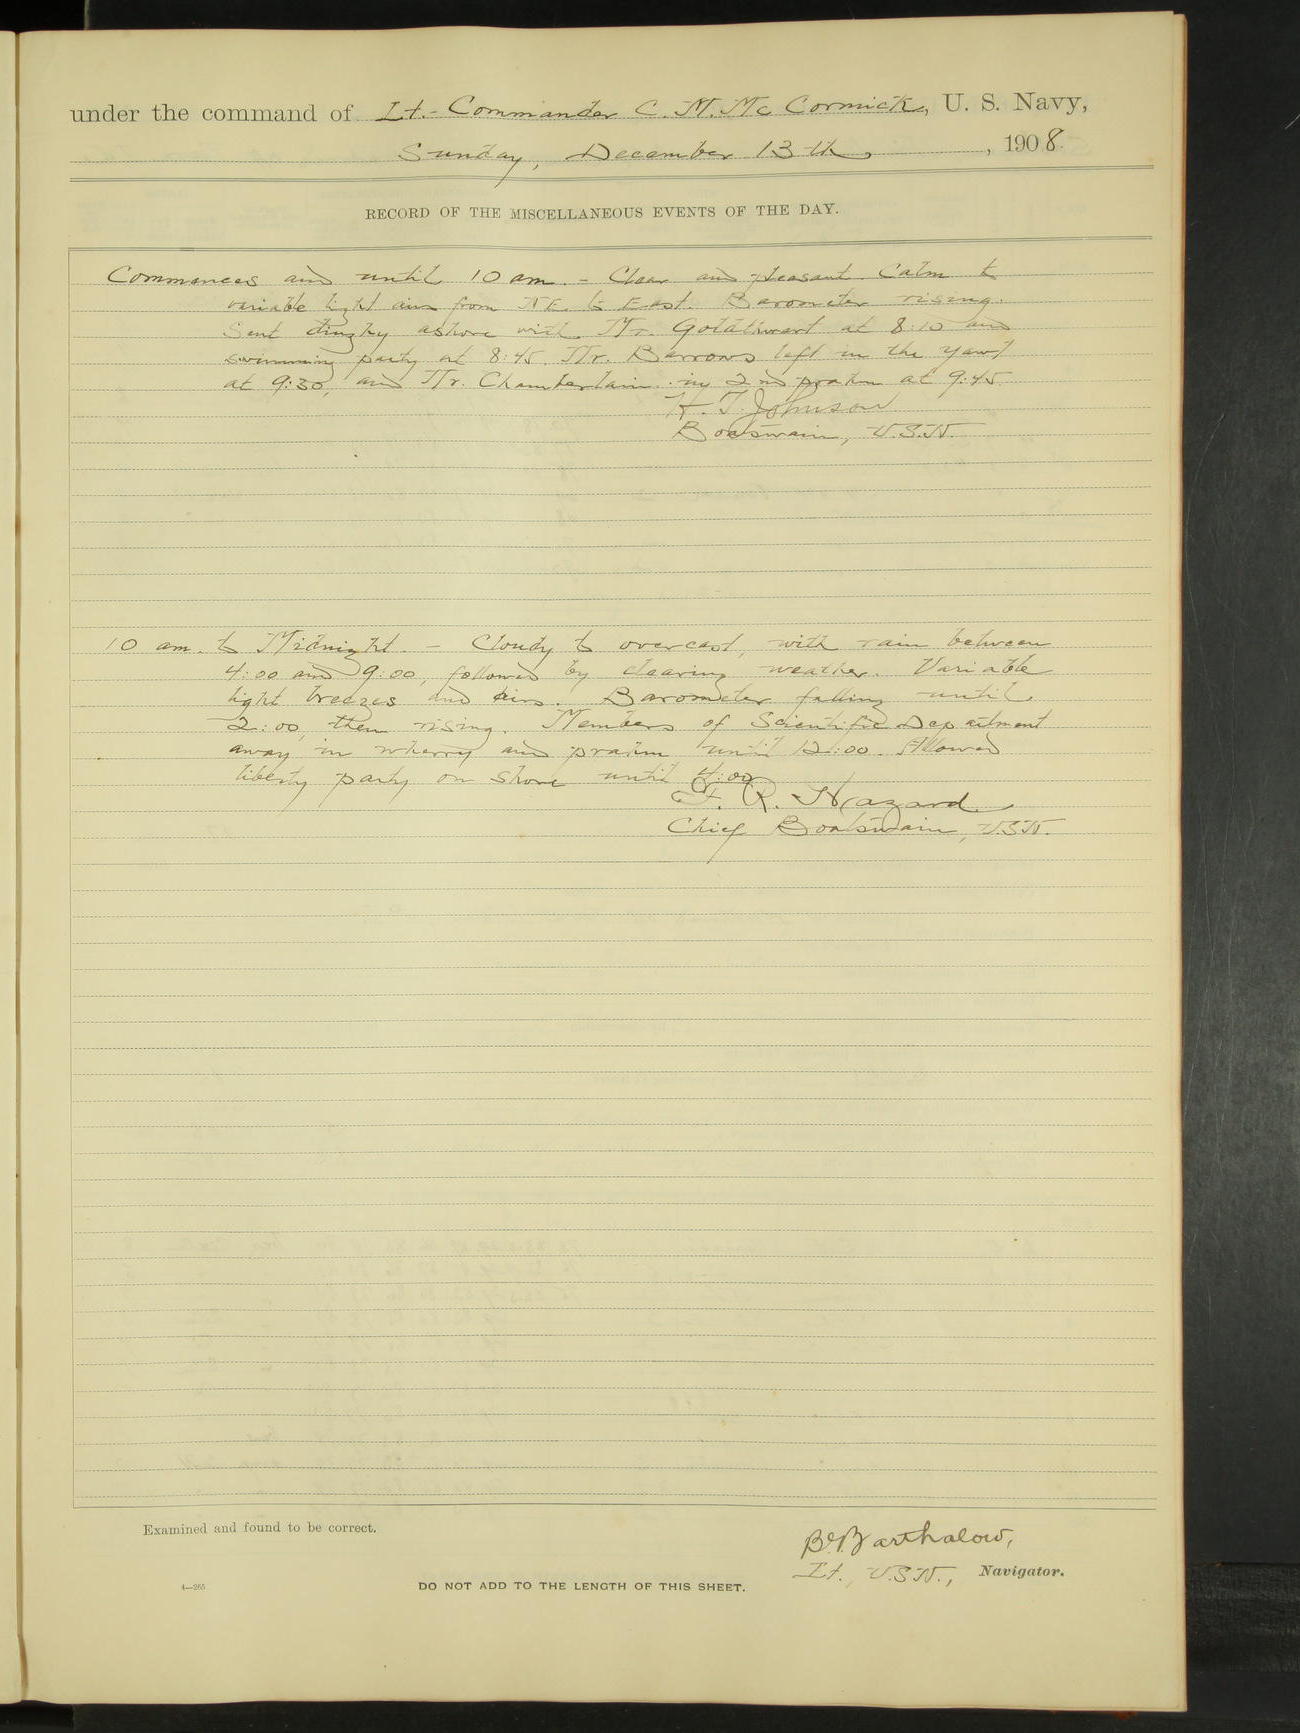 under the command of Lt.-Commander C. M. McCormick, U. S. Navy,
Sunday, December 13th, 1908.
RECORD OF THE MISCELLANEOUS EVENTS OF THE DAY.
Commences and until 10 am. - Clear and pleasant. Calm to
variable light airs from NE. to East. Barometer rising.
Sent dinghy ashore with Mr. Goldthwart at 8:10 and
swimming party at 8:45. Mr. Barrows left in the yawl
at 9:30, and Mr. Chamberlain in 2nd prahm at 9:45.
H. T. Johnson
Boatswain, U.S.N.
10 am. to Midnight. - Cloudy to overcast, with rain between
4:00 and 9:00, followed by clearing weather. Variable
light breezes and airs. Barometer falling until
2:00, then rising. Members of Scientific Department
away in wherry and prahm until 12:00. Allowed
liberty party on shore until 4:00
F. R. Hazard
Chief Boatswain, U.S.N.
Examined and found to be correct.
B. Barthalow,
Lt., U.S.N., Navigator.
4—265
DO NOT ADD TO THE LENGTH OF THIS SHEET.